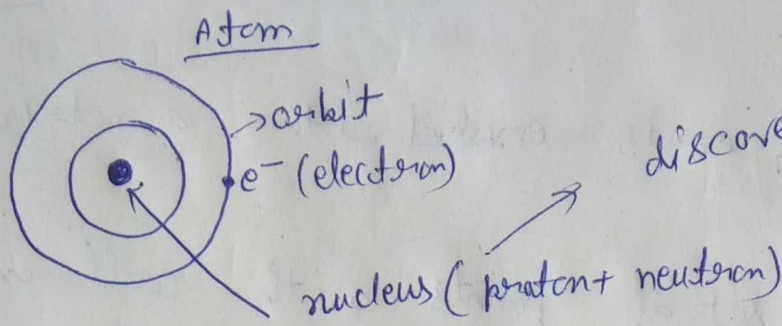 Atom
orbit
e⁻ (electron)
nucleus (proton + neutron)